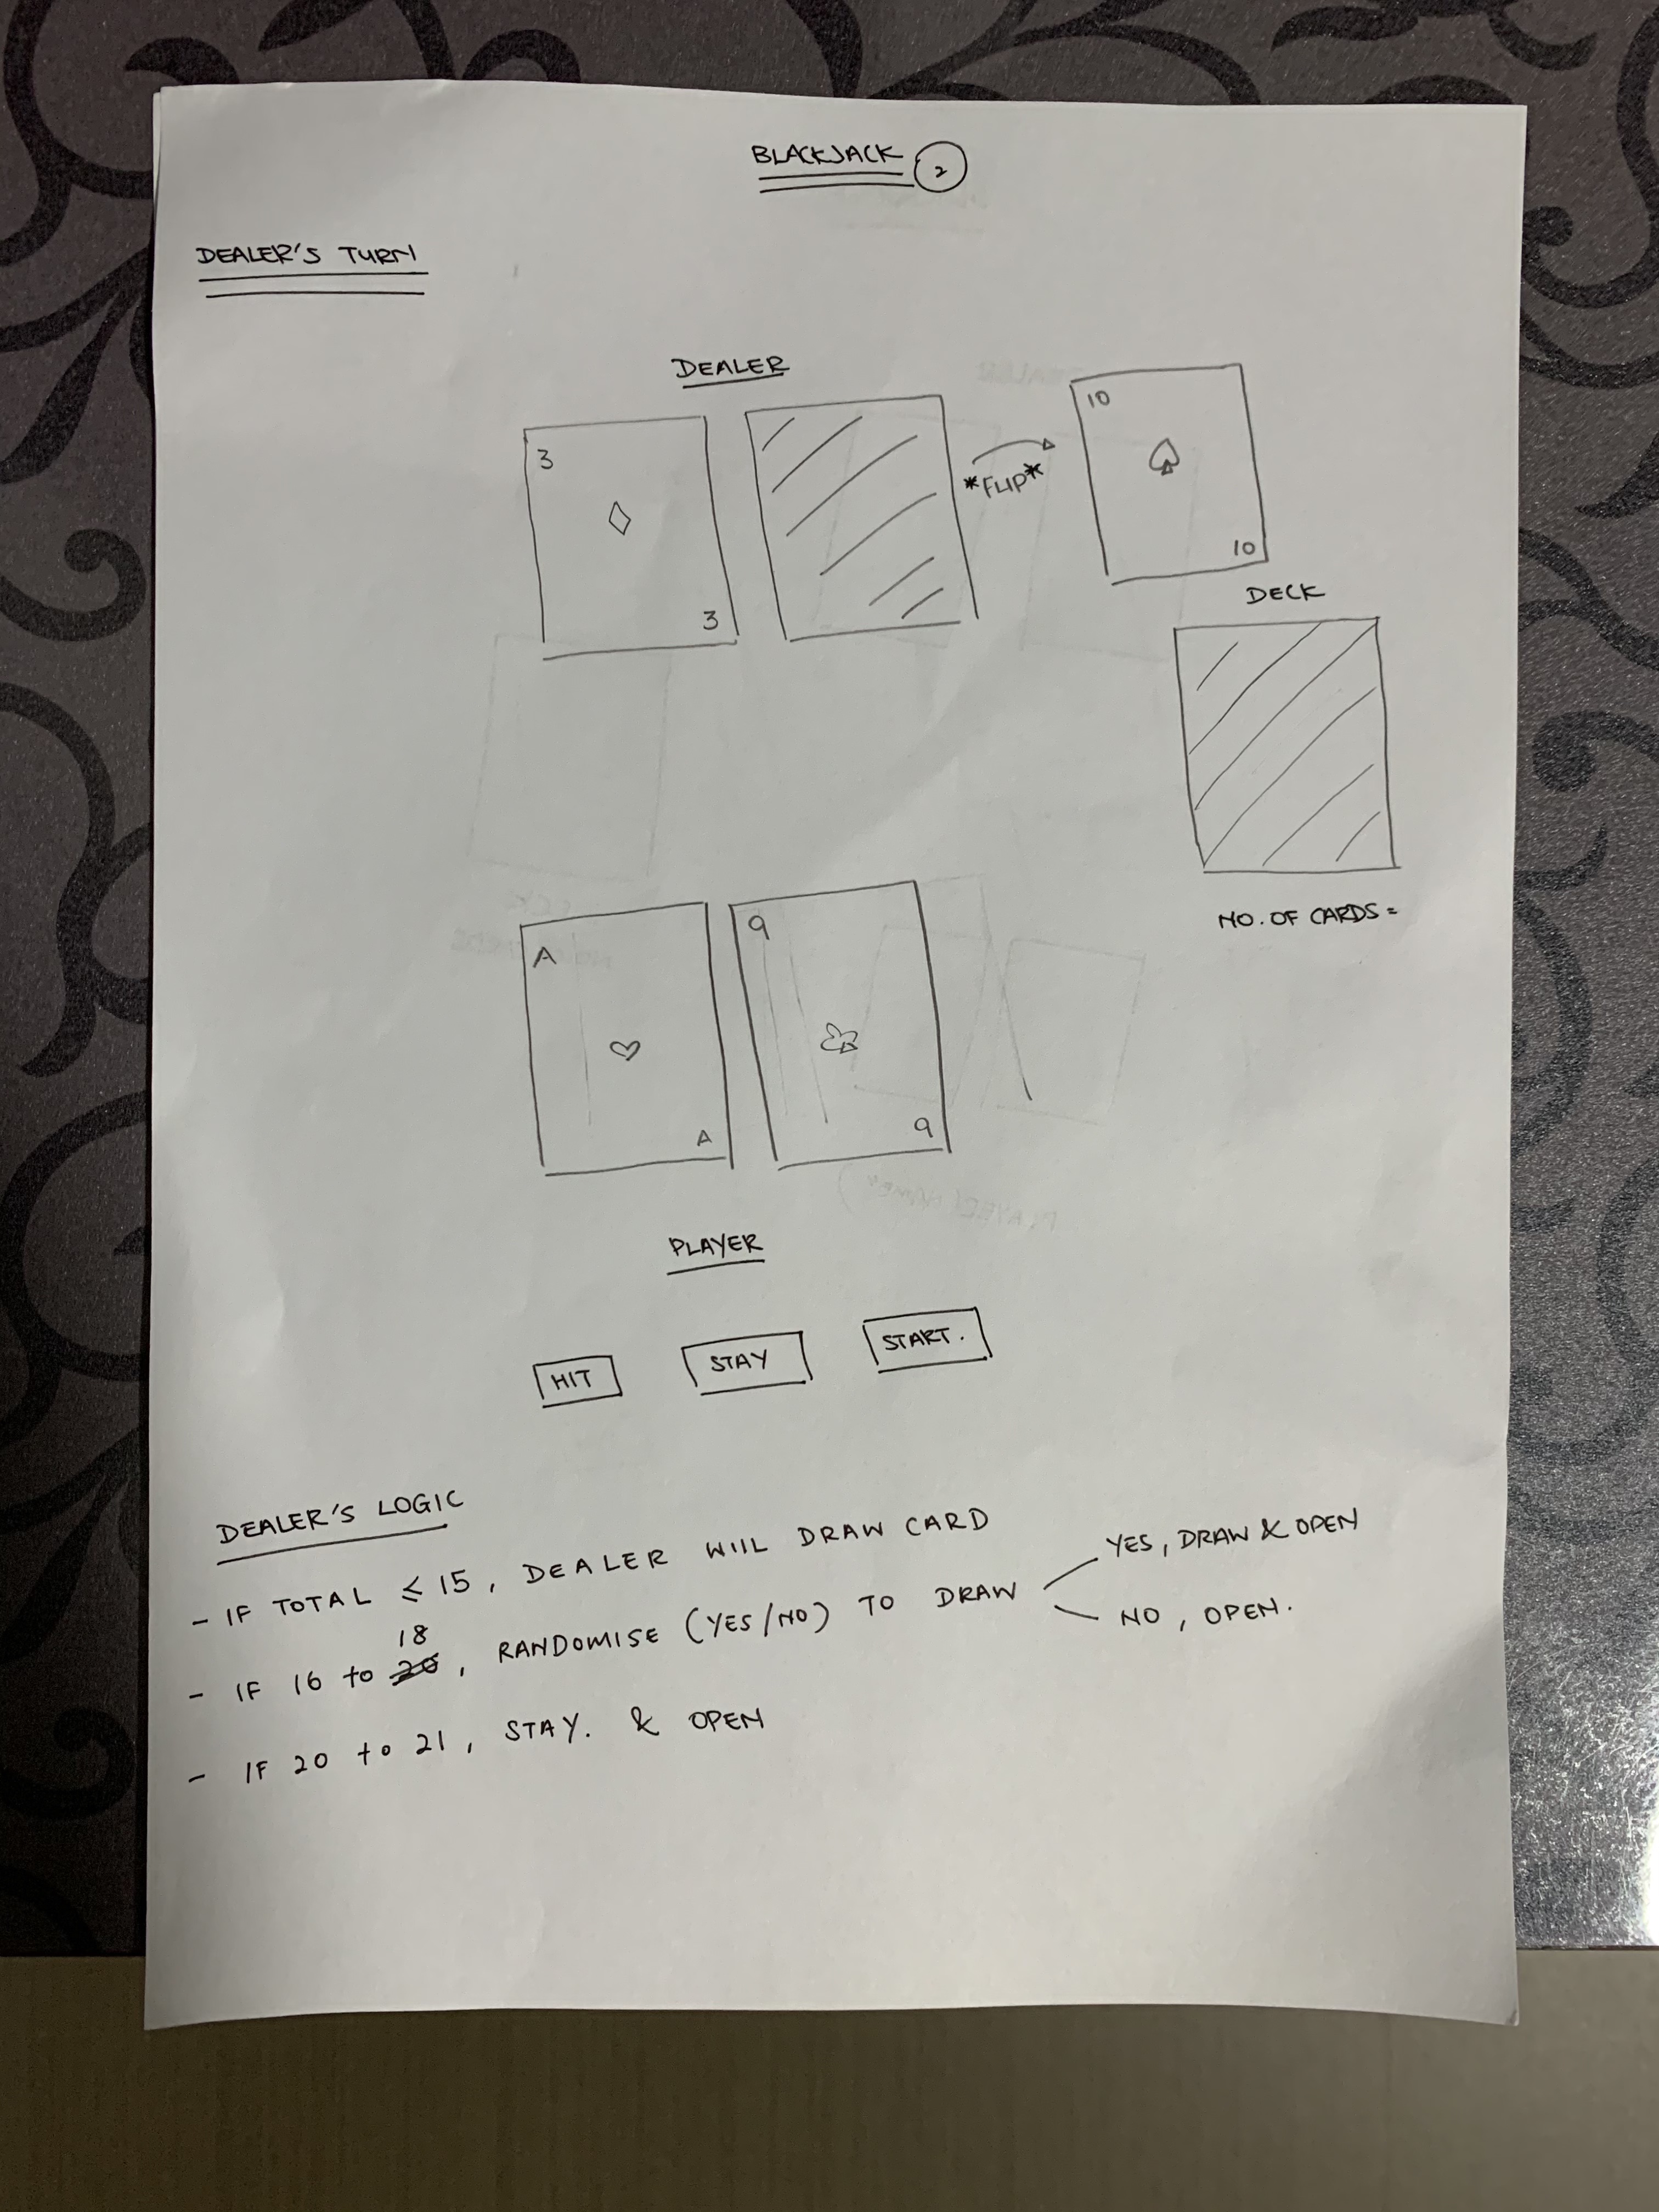 BLACKJACK 2
DEALER'S TURN
DEALER
3
3
*FLIP*
10
10
DECK
NO. OF CARDS =
A
A
9
9
PLAYER
HIT
STAY
START.
DEALER'S LOGIC
- IF TOTAL ≤ 15, DEALER WILL DRAW CARD
- IF 16 to 20 18, RANDOMISE (YES/NO) TO DRAW
YES, DRAW & OPEN
NO, OPEN.
- IF 20 to 21, STAY. & OPEN